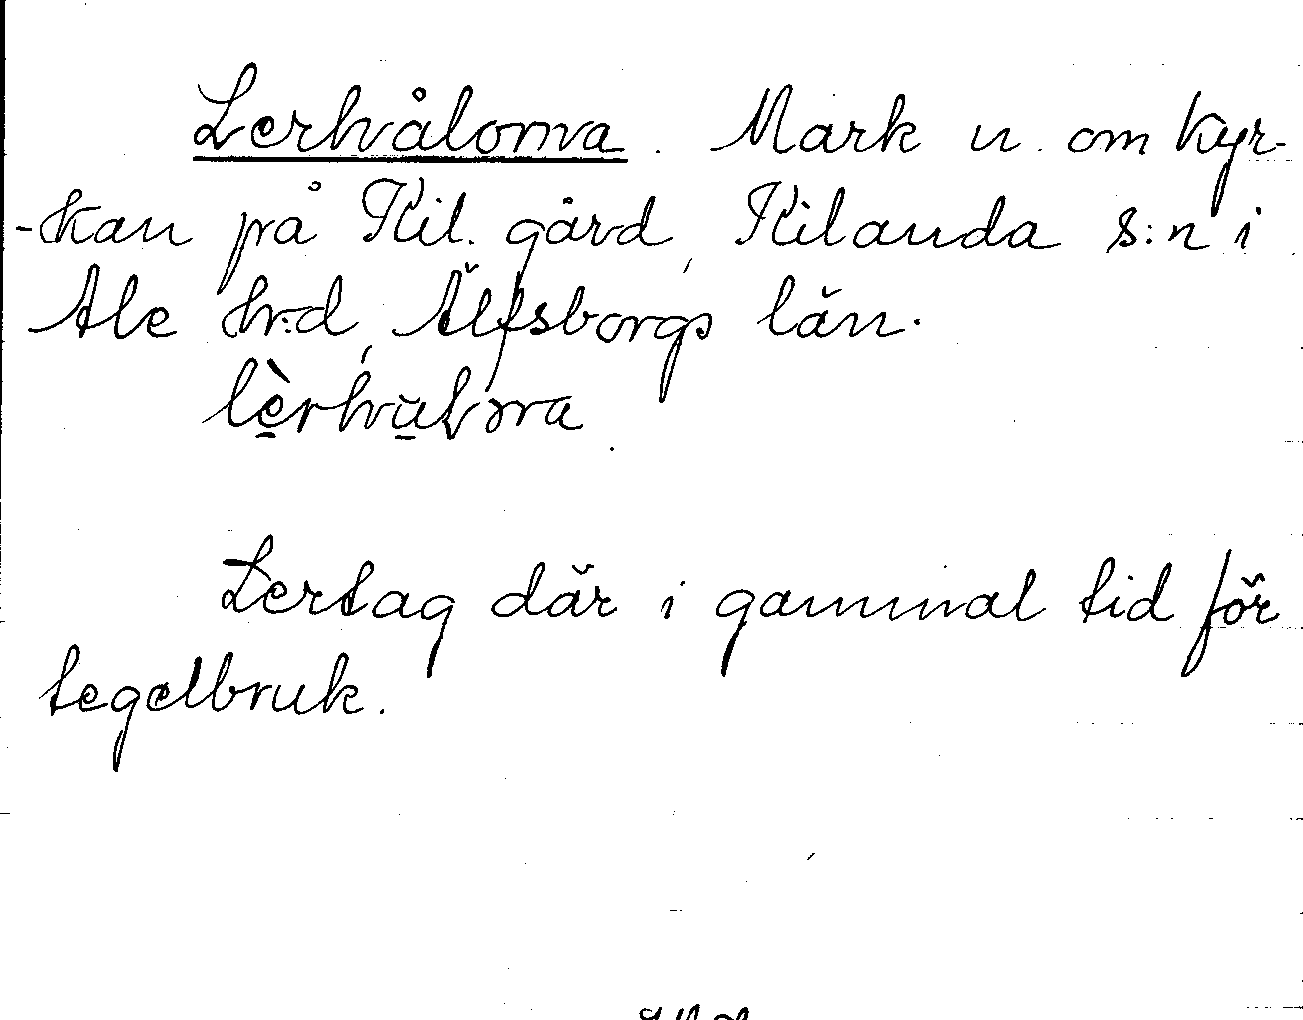 Lerhvålorna. Mark n. om Kyr-
-kan på Kil. gård, Kilanda s:n i
Ale h:d, Älfsborgs län.
Lertag där i gammal tid för
tegelbruk.